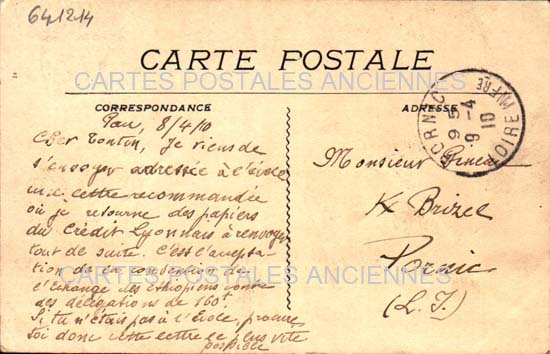 641214
CARTE POSTALE
CARTES POSTALES ANCIENNES
CORRESPONDANCE
ADRESSE
PORNIC
9 5
9 -4
10
LOIRE INFRE
Pau, 8/4/10
Cher Tontin, Je viens de
t'envoyer adressée à l'école
une lettre recommandée
où je retourne des papiers
du Crédit Lyonnais à renvoyer
tout de suite. C'est l'accepta-
tion de la convention de
l'Echange des Ethiopiens contre
des délégations de 160f
Si tu n'étais pas à l'Ecole, procure
toi donc cette lettre le plus vite
possible
CARTES POSTALES ANCIENNES
Monsieur
Pornic
(L. I.)